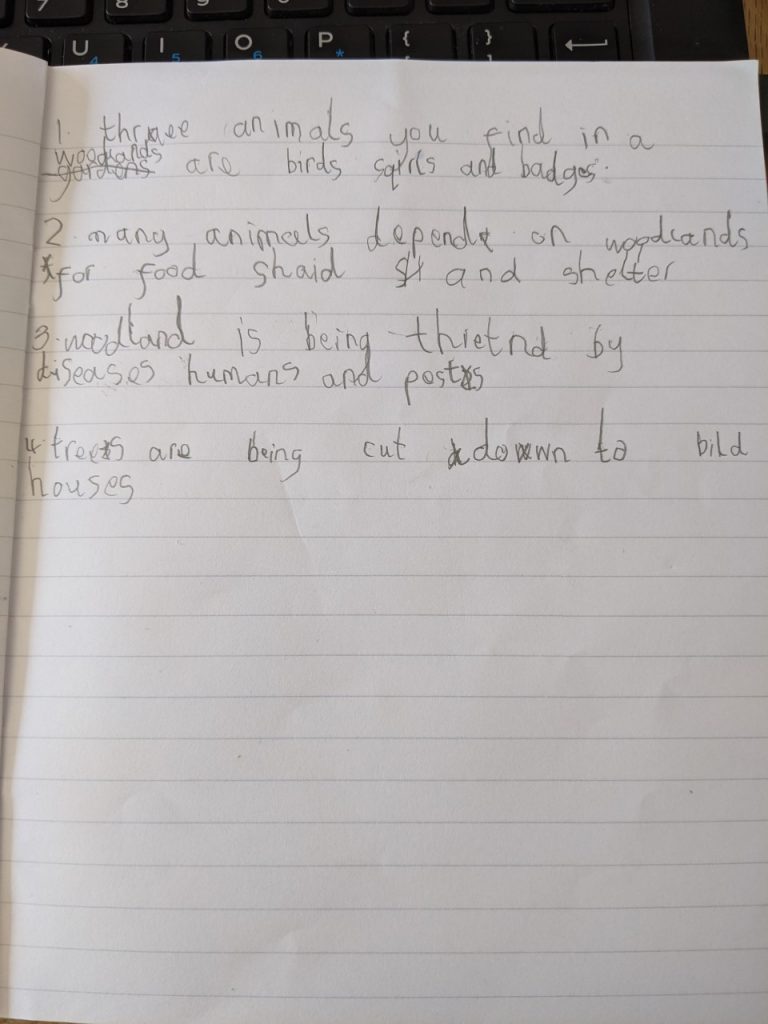 7 8 9
U 4 I 5 O 6 P * { [ } ]
1. three animals you find in a
woodlands
gardens are birds sqirls and badges.
2. many animals depend on woodlands
for food shaid and shelter
3. woodland is being thietnd by
diseases humans and posts
4 trees are being cut down to bild
houses